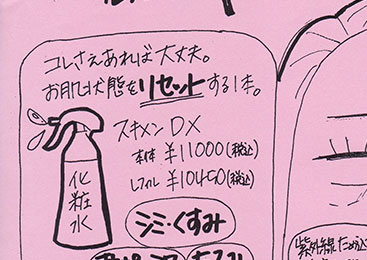 コレさえあれば大丈夫。
お肌状態をリセットする1本。
スキメン DX
本体 ¥11000(税込)
レフィル ¥10450(税込)
化粧水
シミ・くすみ
紫外線ため込